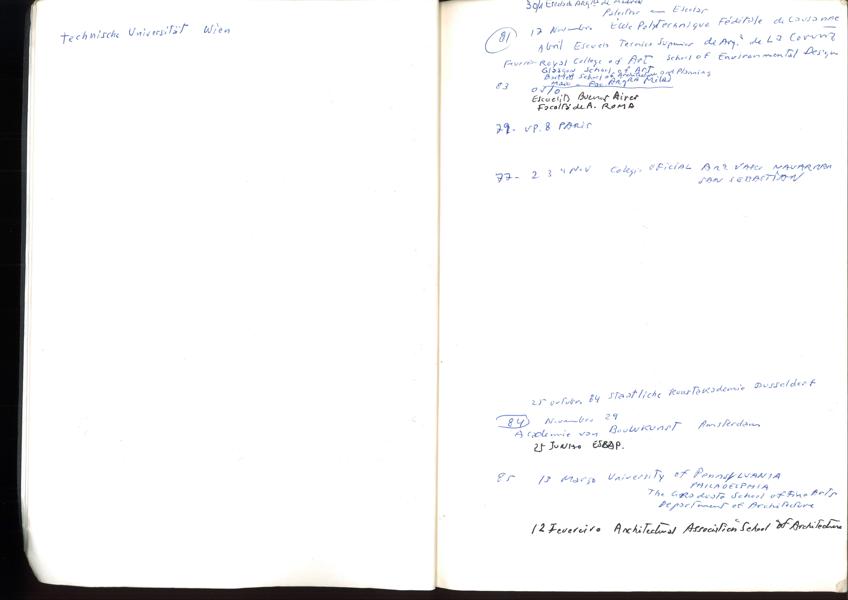 Technische Universität Wien
30/4 Escola de Arq.ra de
Palestra em Escolar
81 17 Novembro École Polytechnique Fédérale de Lausanne
Abril Escuela Tecnica Superior de Arq.ª de La Coruna
Fevereiro Royal College of Art School of Environmental Design
Glasgow School of Art
Bartlett School of Architecture and Planning
Fac ARQRA Milão
83 OSLO
Buenos Aires
Facoltà de A. ROMA
79- UP. 8 PARIS
77- 2 3 4 NOV Colegi. OFICIAL Arq. VASCO NAVARRA
SAN SEBASTIAN
25 84 Staatliche Kunstakademie Dusseldorf
84 November 29
Academie van Bouwkunst Amsterdam
25 JUNHO ESBAP.
85 13 Março University of Pennsylvania
PHILADELPHIA
The Graduate School of Fine Arts
Department of Architecture
12 Fevereiro Architectural Association "School of Architecture